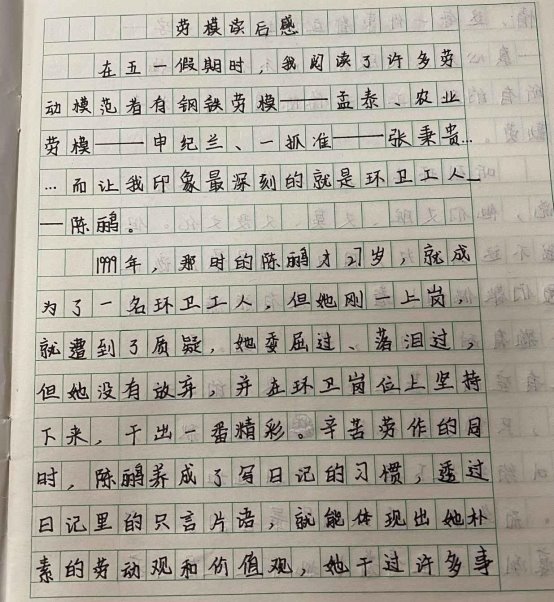 劳模读后感
在五一假期时，我阅读了许多劳
动模范者有钢铁劳模——孟泰、农业
劳模——申纪兰、一抓准——张秉贵…
…而让我印象最深刻的就是环卫工人—
—陈鹂。
1999年，那时的陈鹂才27岁，就成
为了一名环卫工人，但她刚一上岗，
就遭到了质疑，她委屈过、落泪过，
但她没有放弃，并在环卫岗位上坚持
下来，干出一番精彩。辛苦劳作的同
时，陈鹂养成了写日记的习惯，透过
日记里的只言片语，就能体现出她朴
素的劳动观和价值观，她干过许多事